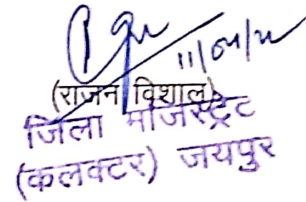 11/04/22
(राजन विशाल)
जिला मजिस्ट्रेट
(कलक्टर) जयपुर